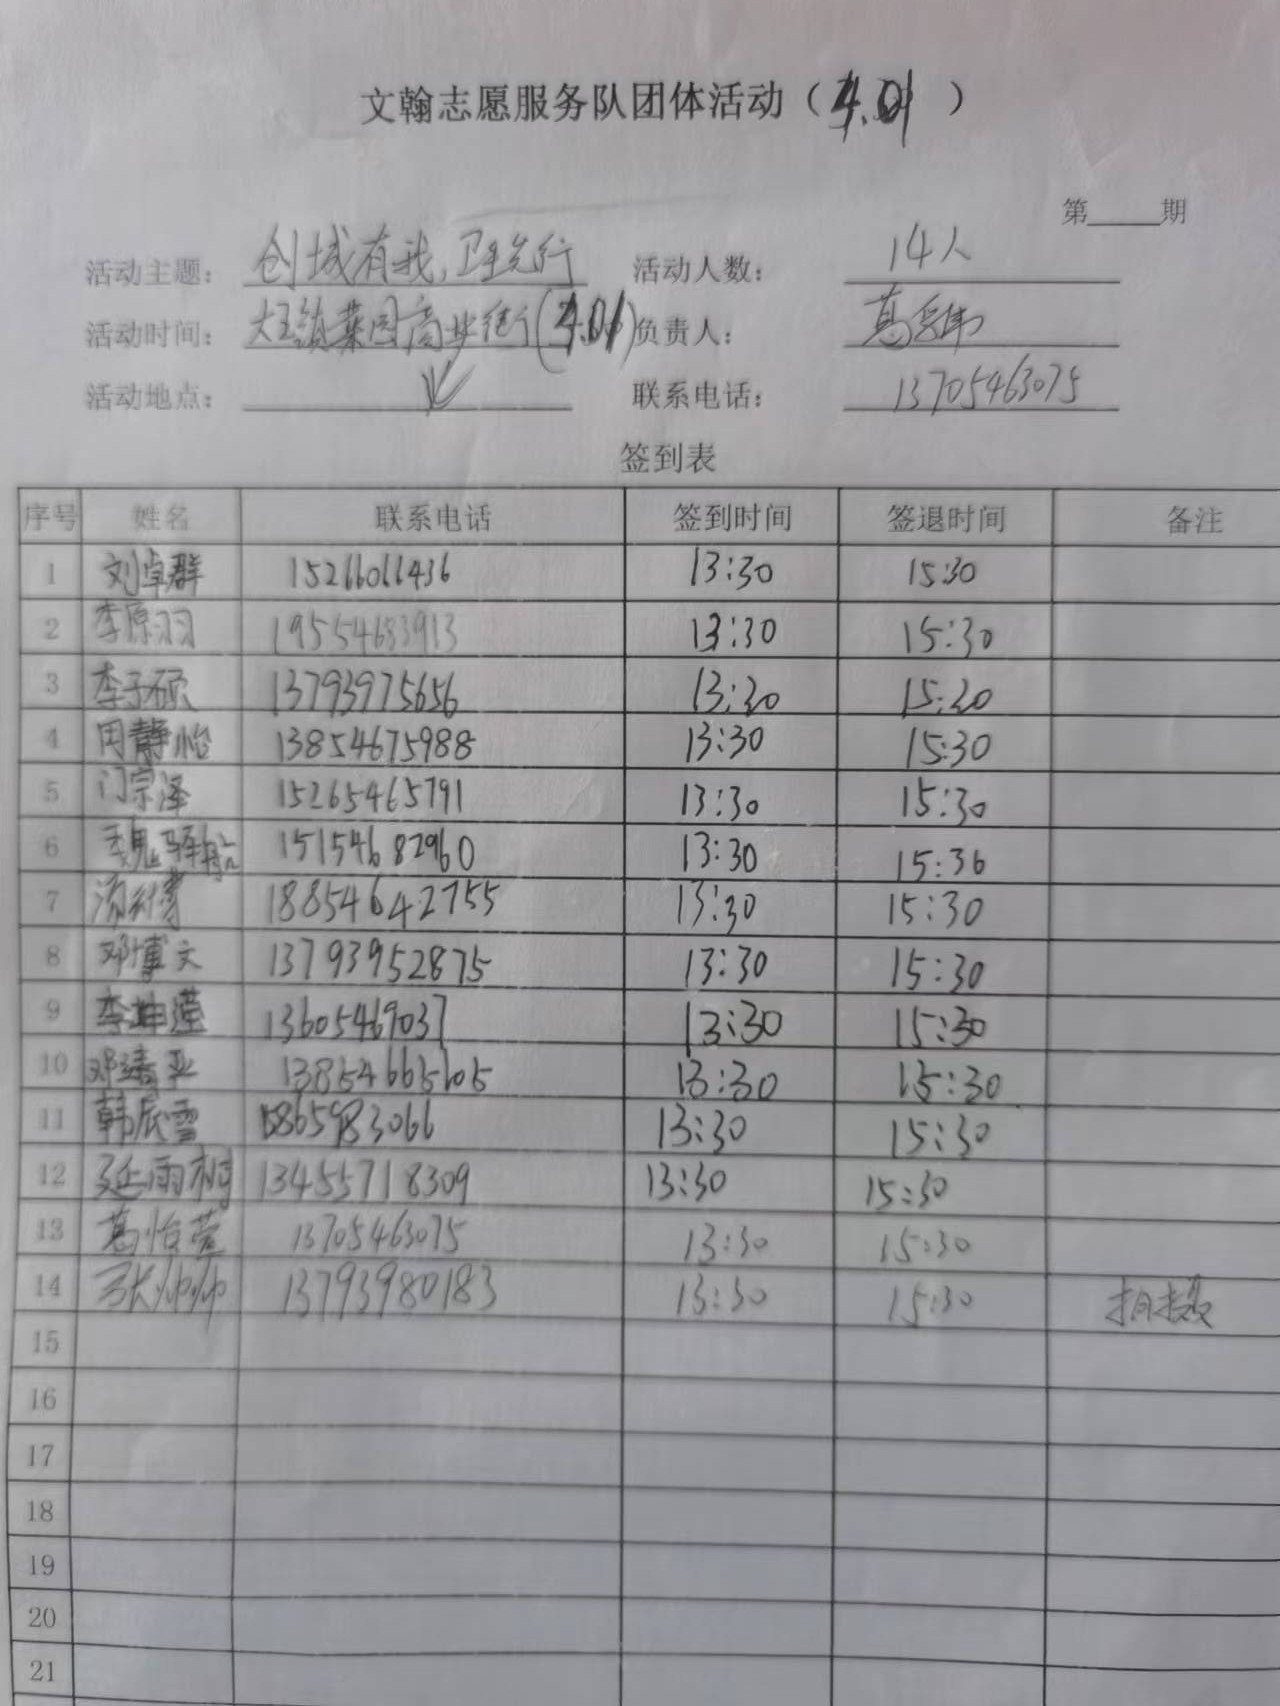 文翰志愿服务队团体活动（4.01）
第____期
活动主题： 创城有我，卫生先行 活动人数： 14人
活动时间： 大王镇菜园商业街(4.01) 负责人： 葛
活动地点： 联系电话： 13705463075
签到表
序号 姓名 联系电话 签到时间 签退时间 备注
1 刘卓群 15266061436 13:30 15:30
2 李原羽 19554683913 13:30 15:30
3 李子硕 13793975656 13:30 15:30
4 周静怡 13854675988 13:30 15:30
5 门宗泽 15265465791 13:30 15:30
6 魏驿船 15154682960 13:30 15:30
7 18854642755 13:30 15:30
8 邓博文 13793952875 13:30 15:30
9 李坤潼 13605469037 13:30 15:30
10 邓靖亚 13854665605 13:30 15:30
11 韩辰雪 13:30 15:30
12 延雨桐 13455718309 13:30 15:30
13 葛怡萱 13705463075 13:30 15:30
14 张帅帅 13793980183 13:30 15:30 拍摄
15
16
17
18
19
20
21